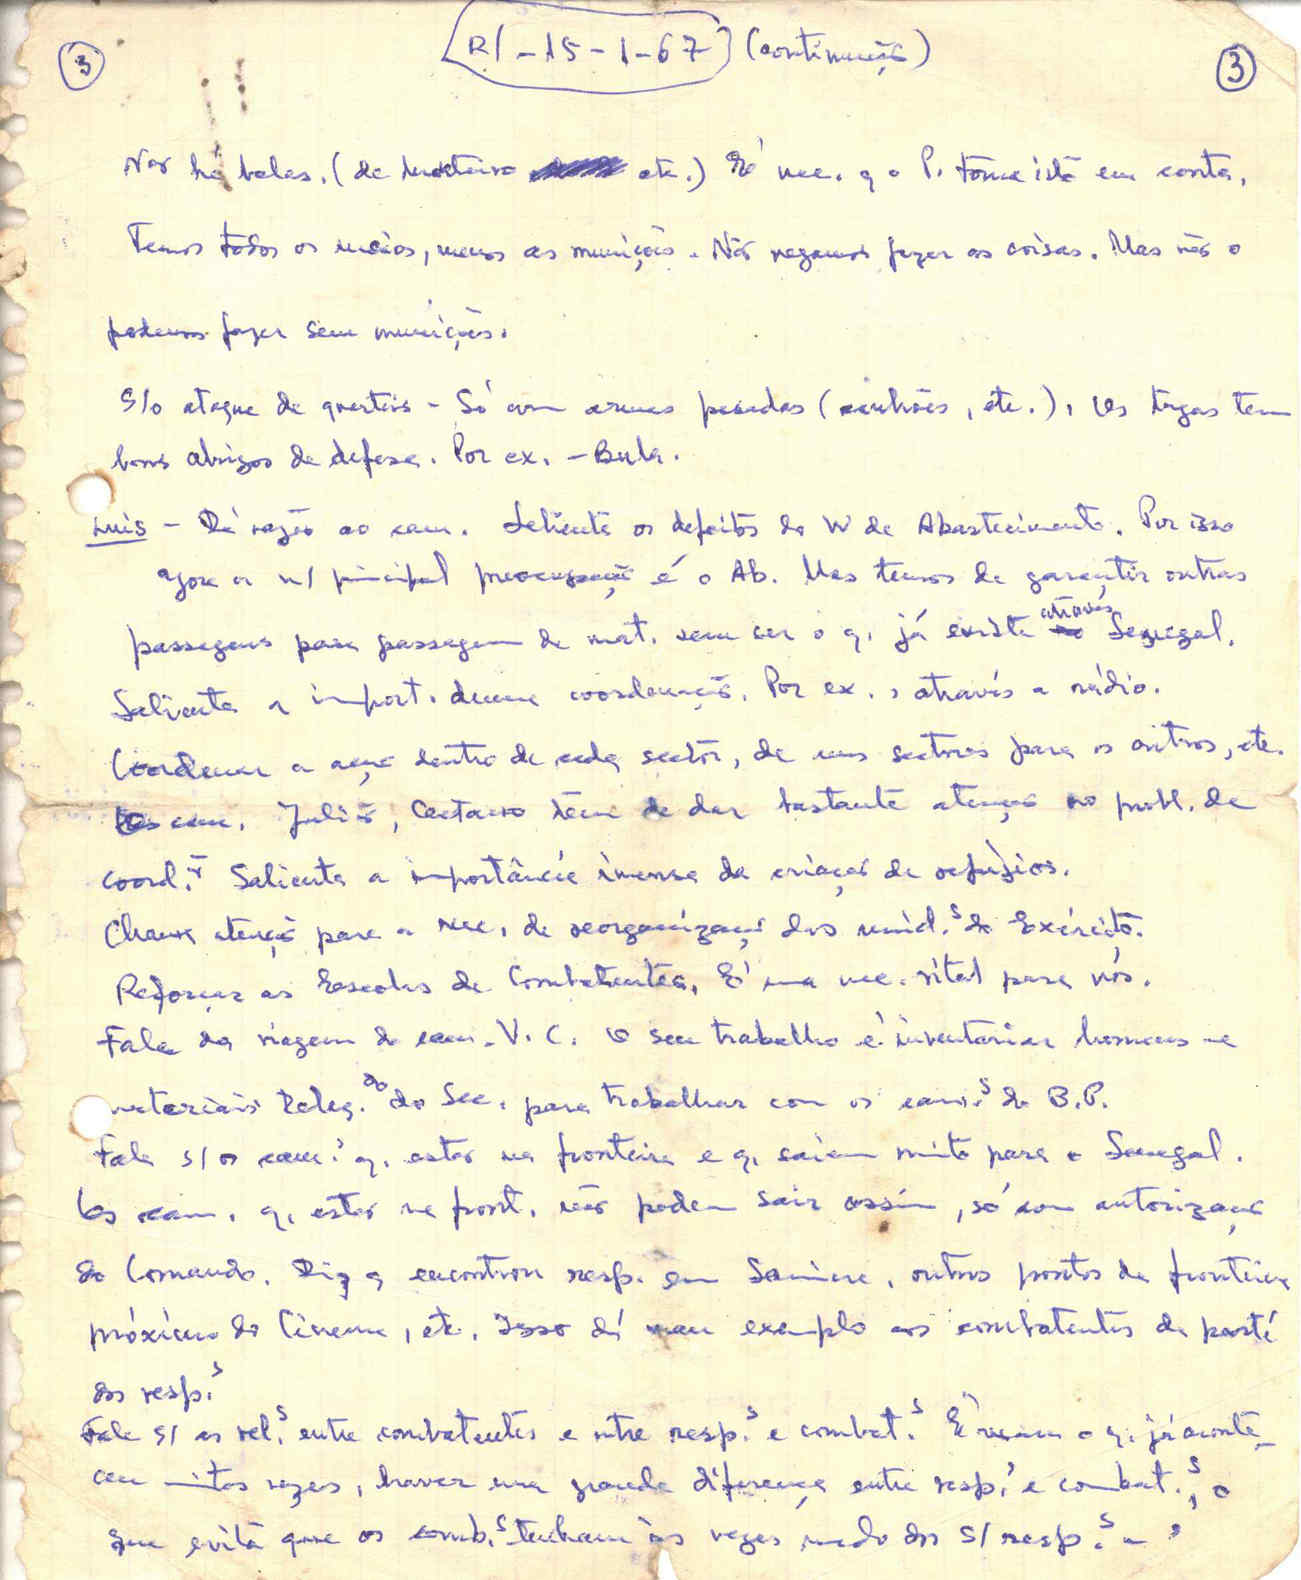 3 R/-15-1-67 (continuação) 3
Não há balas. (de morteiro etc.) É nec. q o P. tome isto em conta.
Temos todos os meios, menos as munições. Não negamos fazer as coisas. Mas não o
podemos fazer sem munições.
S/o ataque de quarteis - Só com armas pesadas (canhões, etc.). Os tugas tem
bons abrigos de defesa. Por ex. - Bula.
Luís - Dá razão ao cam. Salienta os defeitos do W de Abastecimento. Por isso
agora a n/ principal preocupação é o Ab. Mas temos de garantir outras
passagens para passagem de mat. sem ser o q. já existe através Senegal.
Salienta a import. duma coordenação. Por ex., através a rádio.
Coordenar a acção dentro de cada sector, de uns sectores para os outros, etc.
Os cam. Julião, Caetano têm de dar bastante atenção ao probl. de
coord. Salienta a importância imensa da criação de refúgios.
Chama atenção para a nec. de reorganização das unid.s do Exército.
Reforçar as Escolas de Combatentes. É uma nec. vital para nós.
Fala da viagem do cam. V.C. O seu trabalho é inventariar homens e
materiais Deleg.do do Sec. para trabalhar com os cam.s do B.P.
Fala s/ os cam.s q. estão na fronteira e q. saiem muito para o Senegal.
Os cam. q. estão na front. não podem sair assim, só com autorização
do Comando. Diz q encontrou resp. em Samine, outros pontos da fronteira
próximo do Cinema, etc. Isso dá mau exemplo aos combatentes da parte
dos resp.s
Fala s/ as rel.s entre combatentes e entre resp.s e combat.s É q. já aconte-
ceu muitas vezes, haver uma grande diferença entre resp.s e combat.s, o
que evita que os comb.s tenham às vezes medo dos s/ resp.s